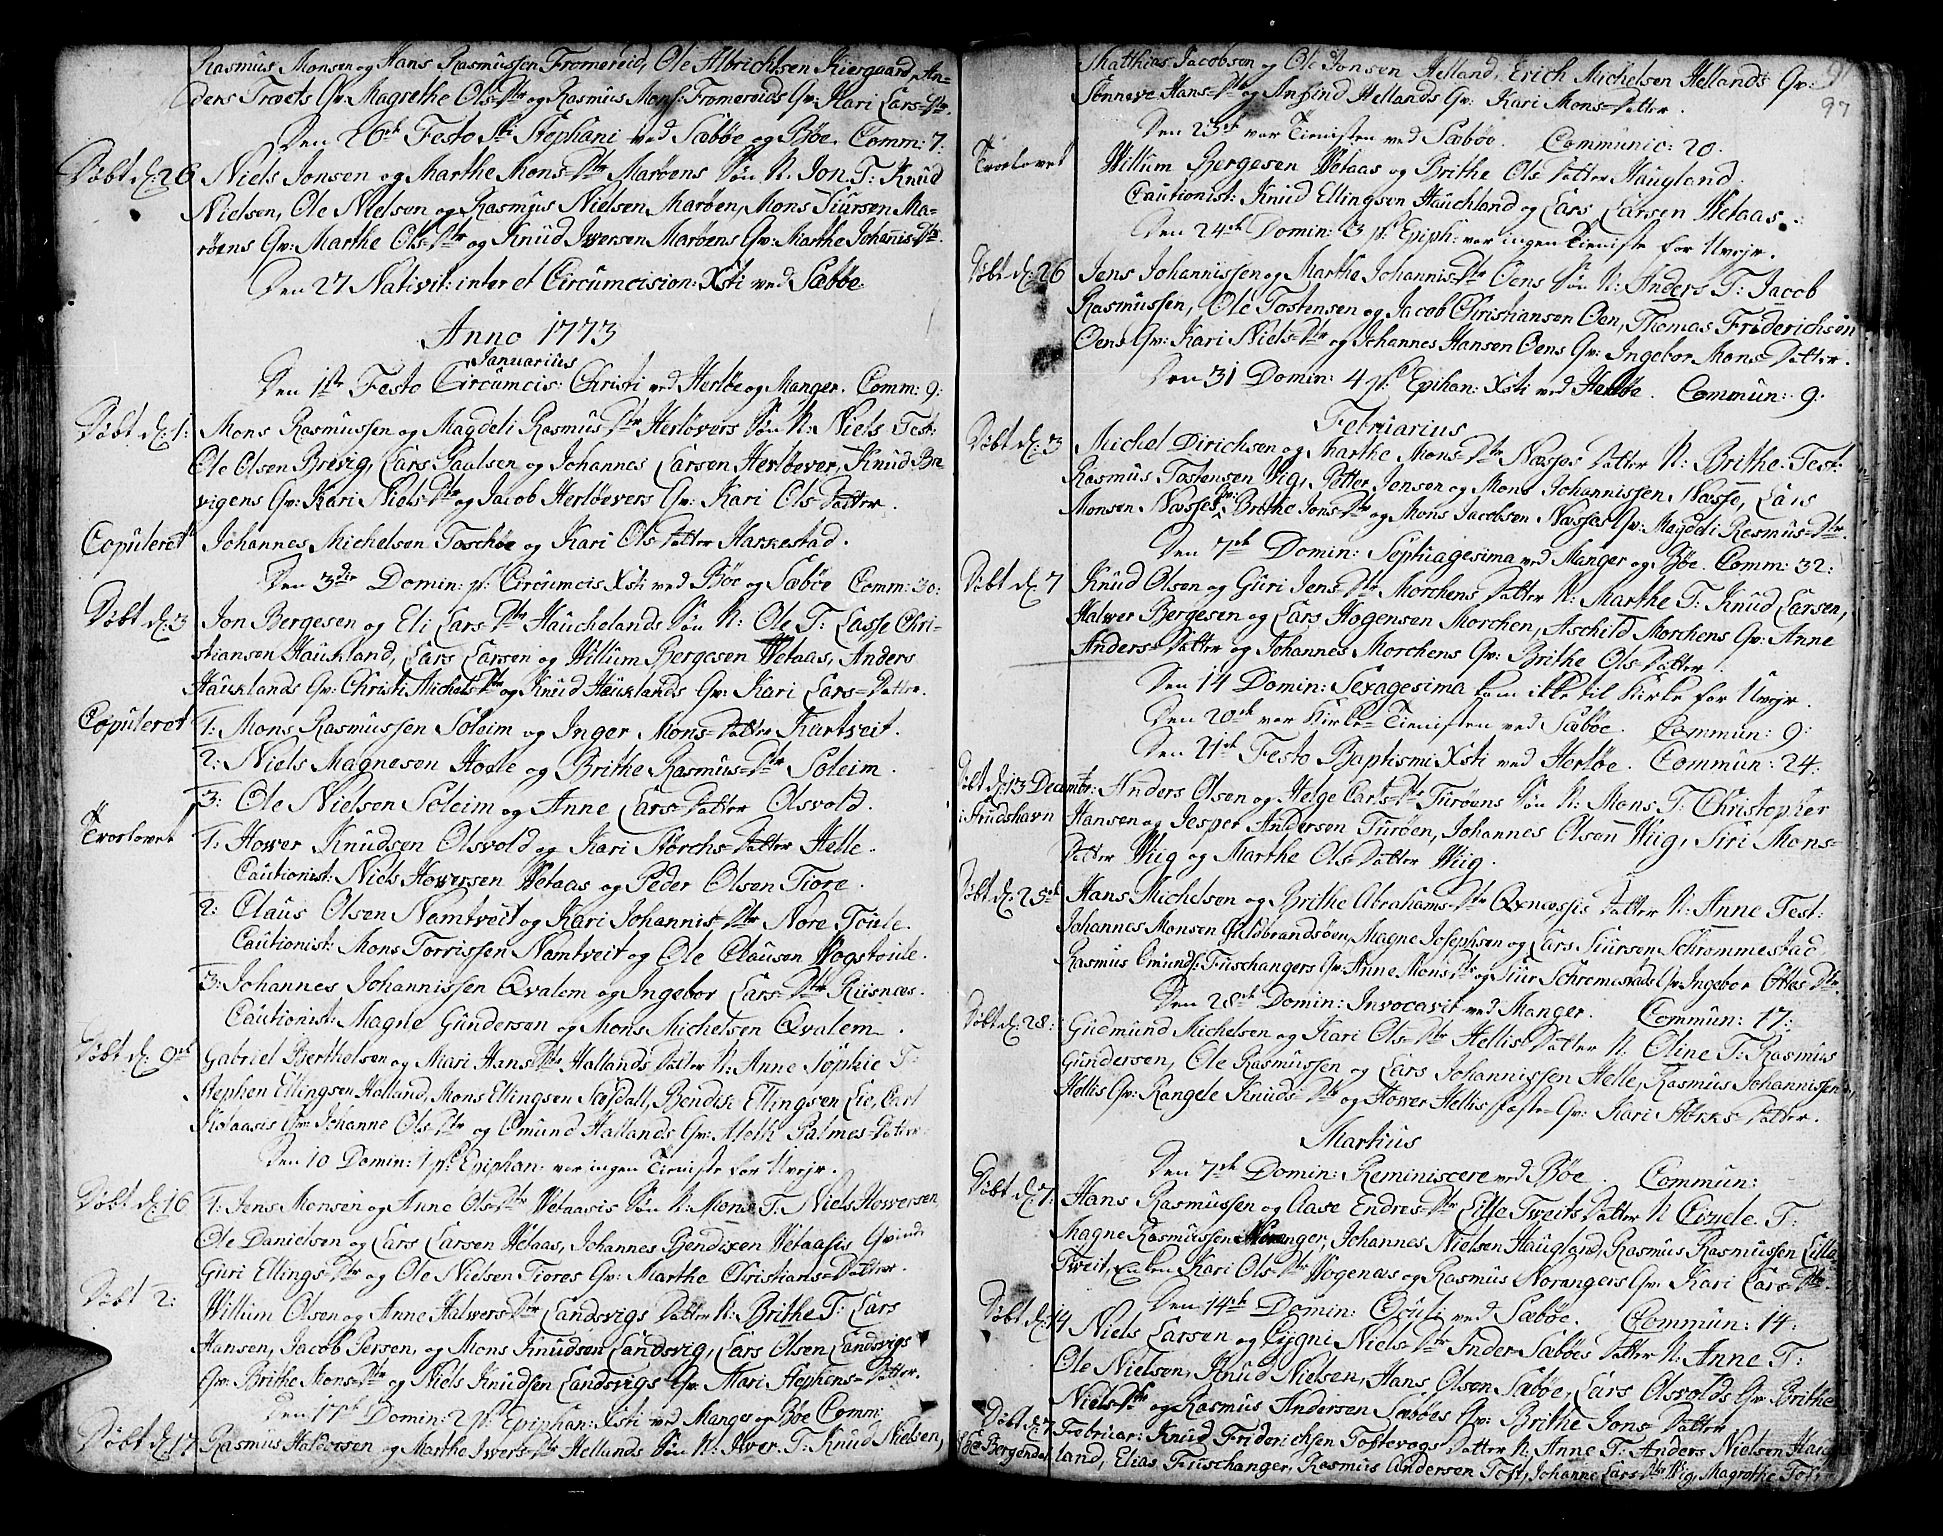 Rasmus Monsen og Hans Rasmussen Fromereid, Ole Albrichtsen Kiergaard, An-
ders Troets Qv: Magrethe Ols-Dtr og Rasmus Mons: Fromereids Qv: Kari Lars-Dtr.
Den 26de Festo Sti Stephani ved Sæbøe og Bøe. Comm: 7.
Døbt d. 26 Niels Jonsen og Marthe Mons-Dtr Marøens Søn N: Jon. T: Knud
Nielsen, Ole Nielsen og Rasmus Nielsen Marøen, Mons Siursen Ma-
røens Qv: Marthe Ols-Dtr og Knud Iversen Marøens Qv: Marthe Johanis-Dtr.
Den 27 Nativit: inter et Circumcision: Xsti ved Sæbøe.
Anno 1773
Januarius
Den 1ste Festo Circumcis: Christi ved Herløe og Manger. Comm: 9:
Døbt d. 1: Mons Rasmussen og Magdeli Rasmus-Dtr Herløvers Søn N: Niels Test:
Ole Olsen Brevig, Lars Paulsen og Johannes Larsen Herløever, Knud Bre
vigens Qv: Kari Niels-Dtr og Jacob Herløevers Qv: Kari Ols-Datter.
Copuleret Johannes Michelsen Toschøe og Kari Ols-Datter Harkestad.
Den 3die Domin: p: Circumcis Xsti ved Bøe og Sæbøe Comm: 30:
Døbt d. 3 Jon Bergesen og Eli Lars-Dtr Hauchelands Søn N: Ole T: Lasse Chri-
stiansen Haukland, Lars Larsen og Willum Bergesen Wetaas, Anders
Hauklands Qv: Christi Michels-Dtr og Knud Hauklands Qv: Kari Lars-Datter.
Copuleret 1: Mons Rasmussen Soleim og Inger Mons-Datter Kartveit.
2: Niels Magnesen Hodle og Brithe Rasmus-Dtr Soleim.
3: Ole Nielsen Soleim og Anne Lars-Datter Olsvold.
Troelovet 1: Hower Knudsen Olsvold og Kari Størchs-Datter Helle.
Cautionist: Niels Howersen Wetaas og Peder Olsen Fiore.
2: Claus Olsen Namtveit og Kari Johannis-Dtr Nore Toule.
Cautionist: Mons Torrissen Namtveit og Ole Clausen Wogstoule.
3: Johannes Johannissen Qvalem og Ingebor Lars-Dtr Riisnæs.
Cautionist: Magne Gundersen og Mons Michelsen Qvalem.
Døbt d. 9de Gabriel Berthelsen og Mari Hans Dtr Hallands Datter N: Anne Sophie T:
Stephen Ellingsen Halland, Mons Ellingsen Sæfdall, Bendix Ellingsen Lie, Carl
Qv: Johanne Ols Dtr og Omund Hallands Qv: Aleth Palmes-Datter.
Den 10 Domin: 1 p: Epiphan: var ingen Tieniste for Uvejr.
Døbt d. 16 1: Jens Monsen og Anne Ols-Dtr Wetaasis Søn N: Mons T: Niels Howersen
Ole Danielsen og Lars Larsen Wetaas, Johannes Bendixen Wetaasis Qvinde
Guri Ellings-Dtr og Ole Nielsen Fiores Qv: Marthe Christians-Datter.
Døbt 2: Willum Olsen og Anne Halvers-Dtr Landsvigs Datter N: Brithe T: Lars
Hansen, Jacob Persen, og Mons Knudsen Landsvig, Lars Olsen Landsvigs
Qv: Brithe Mons-Dtr og Niels Knudsen Landsvigs Qv: Mari Stephens-Datter.
Den 17de Domin: 2 p: Epiphan: Xsti ved Manger og Bøe Comm:
Døbt d. 17 Rasmus Haldersen og Marthe Iwers-Dtr Hellands Søn N: Iwer. T: Knud Nielsen,
97
Matthias Jacobsen og Ole Jonsen Helland, Erich Michelsen Hellands Qv:
Sønneve Hans-Dtr og Anfind Hellands Qv: Kari Mons-Datter.
Den 23de var Tienisten ved Sæbøe. Communic: 20.
Troelovet Willum Bergesen Wetaas og Brithe Ols Datter Haugland.
Cautionist: Knud Ellingsen Hauchland og Lars Larsen Wetaas.
Den 24de Domin: 3 p: Epiph: var ingen Tieniste for Uvejr.
Døbt d. 26 Jens Johannissen og Marthe Johannis-Dtr Oens Søn N: Anders T: Jacob
Rasmussen, Ole Tostensen og Jacob Christiansen Oen, Thomas Friderichsen
Oens Qv: Kari Niels-Dtr og Johannes Hansen Oens Qv: Ingebor Mons-Datter.
Den 31 Domin: 4 p: Epihan: Xsti ved Herløe. Commun: 9.
Februarius
Døbt d. 3 Michel Dirichsen og Marthe Mons-Dtr Næsses Datter N: Brithe. Test:
Rasmus Tostensen Wig, Petter Jensen og Mons Johannissen Næsse, Lars
Monsen Næsses Qv: Brithe Jons-Dtr og Mons Jacobsen Næsses Qv: Magdeli Rasmus-Dtr.
Den 7de Domin: Septuagesima ved Manger og Bøe. Comm: 32:
Døbt d. 7 Knud Olsen og Guri Jens-Dtr Morchens Datter N: Marthe T: Knud Larsen,
Halver Bergesen og Lars Hogensen Morchen, Aschild Morchens Qv: Anne
Anders-Datter og Johannes Morchens Qv: Brithe Ols-Datter.
Den 14 Domin: Sexagesima kom ikke til Kirke for Uvejr.
Den 20de var Kirke-Tienisten ved Sæbøe. Commun: 9:
Den 21de Festo Baptismi Xsti ved Herløe. Commun: 24.
Døbt d. 13 Decembr: Anders Olsen og Helge Carls-Dtr Turøens Søn N: Mons T: Christopher
i Strudshavn Hansen og Jesper Andersen Turøen, Johannes Olsen Wiig, Siri Mons-
Datter Wiig og Marthe Ols-Datter Wiig.
Døbt d. 25de Hans Michelsen og Brithe Abrahams-Dtr Qxnæssis Datter N: Anne Test:
Johannes Monsen Hildbrandsøen, Magne Josephsen og Lars Siursen Schrommestad
Rasmus Omunds: Fuschangers Qv: Anne Mons Dtr og Siur Schromestads Qv: Ingebor Ottes-Dtr.
Den 28de Domin: Invocavit ved Manger. Commun: 17:
Døbt d. 28: Gudmund Michelsen og Kari Ols-Dtr Hellis Datter N: Oline T: Rasmus
Gundersen, Ole Rasmussen og Lars Johannissen Helle, Rasmus Johannissen
Hellis Qv: Rangele Knuds-Dtr og Hower Hellis Fæste-Qv: Kari Størks-Datter.
Martius
Den 7de Domin: Reminiscere ved Bøe. Commun:
Døbt d. 7: Hans Rasmussen og Aase Endres-Dtr Lille Tweits Datter N: T:
Magne Rasmussen Noranger, Johannes Nielsen Haugland, Rasmus Rasmussen Lille
Tweit, Kari Ols-Dtr Wogenæs og Rasmus Norangers Qv: Kari Lars-Dtr.
Den 14de Domin: Oculi ved Sæbøe. Commun: 14.
Døbt d. 14 Niels Larsen og Niels-Dtr Inder Sæbøes Datter N: Anne T:
Ole Nielsen, Knud Nielsen, Hans Olsen Sæbøe, Lars Olsvolds Qv: Brithe
Niels-Dtr og Rasmus Andersen Sæbøes Qv: Brithe Jons-Datter
Døbt d. 7 Februar: Knud Friderichsen Toftevogs Datter N: Anne T: Anders Nielsen Haug
land, Elias Fuschanger, Rasmus Andersen Toft, Johanne Lars-Dtr Wiig, Magrethe Tof: